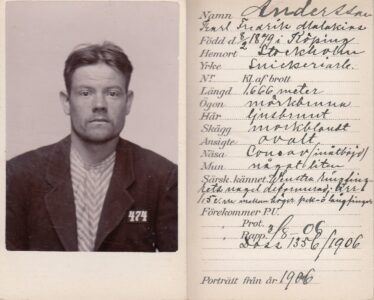 474
Namn Andersson
Karl Fredrik Malakias
Född d. 8/2 1879 i Köping
Hemort Stockholm
Yrke Snickeriarb.
Nr Kl. af brott
Längd 1,666 meter
Ögon mörkbruna
Hår ljusbrunt
Skägg mörkblondt
Ansigte ovalt
Näsa Concav (inåtböjd)
Mun något liten
Särsk. kännet. Venstra långfing-
rets nagel deformerad. Ärr i
1,5 c. m. mellan höger pek- o långfinger
Förekommer PU.
Prot.
Rapp. 2/8 - 06
Doss 1356/1906
Porträtt från år 1906